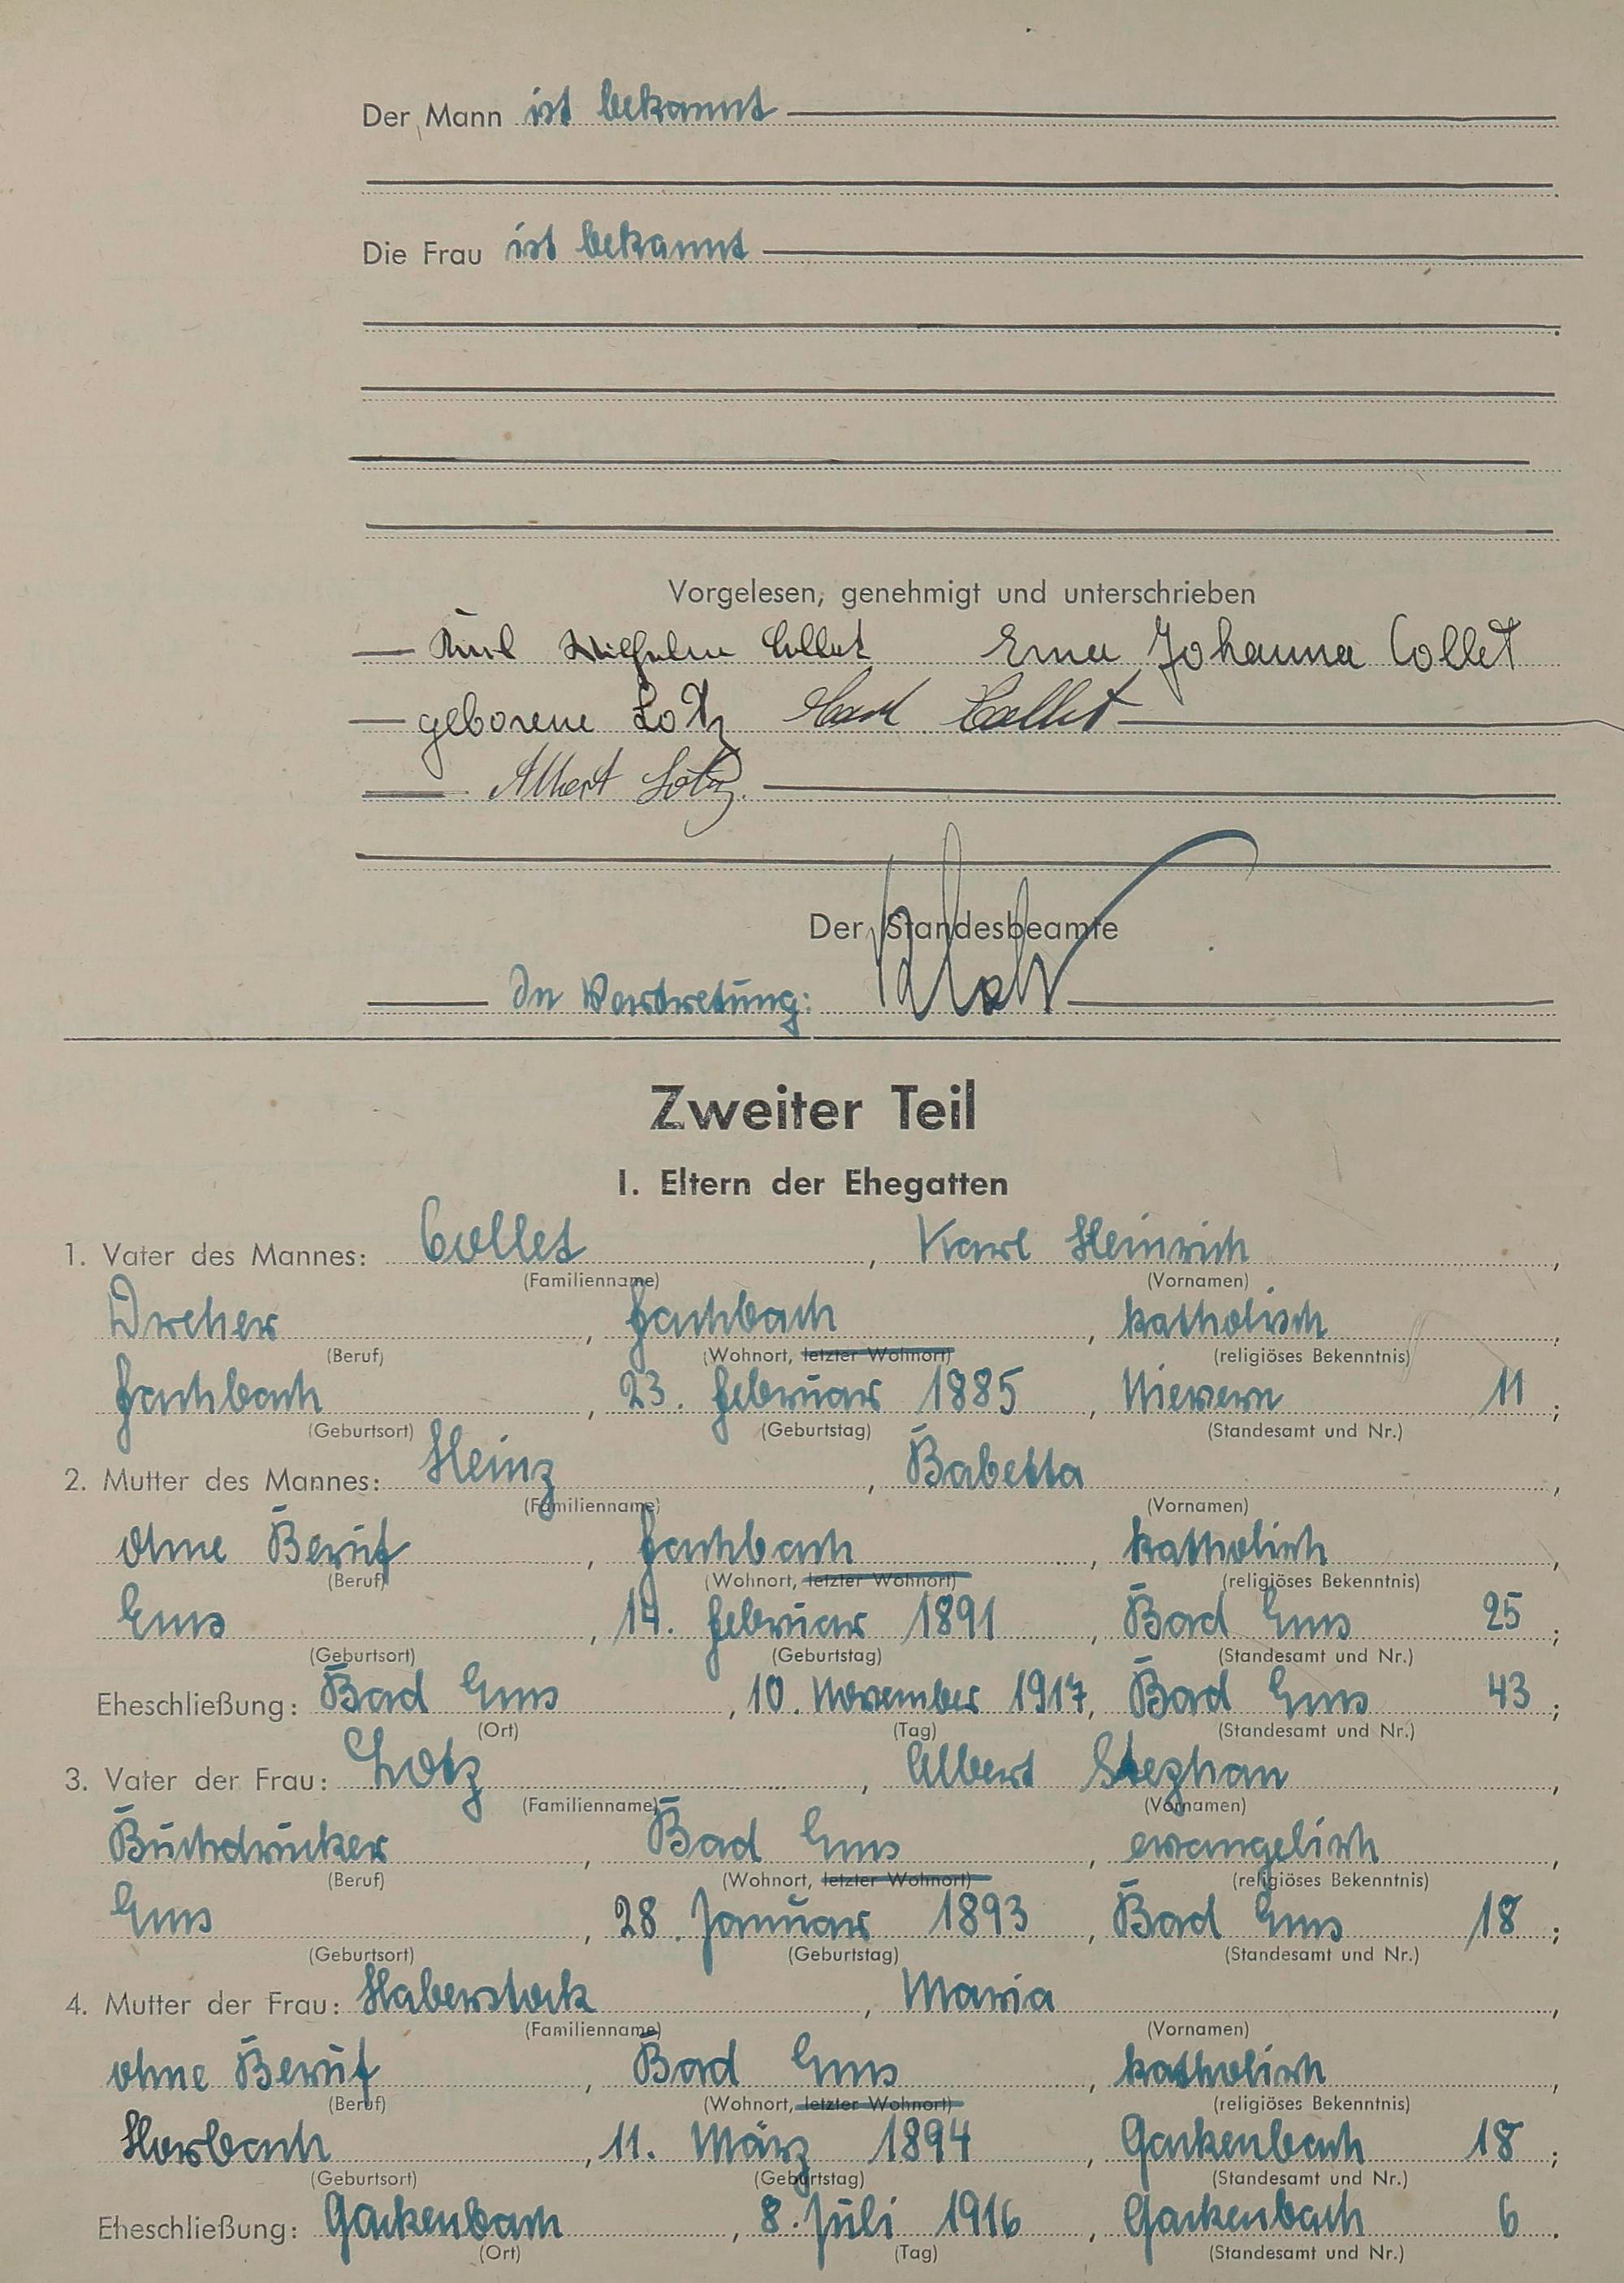 Der Mann ist bekannt
Die Frau ist bekannt
Vorgelesen, genehmigt und unterschrieben
Wilhelm Collet Erna Johanna Collet
geborene Lotz Karl Collet
Albert Lotz.
Der Standesbeamte
In Vertretung:
Zweiter Teil
I. Eltern der Ehegatten
1. Vater des Mannes: Collet, Karl Heinrich,
(Familienname) (Vornamen)
Dreher, Fachbach, katholisch,
(Beruf) (Wohnort, letzter Wohnort) (religiöses Bekenntnis)
Fachbach, 23. Februar 1885, Nievern 11;
(Geburtsort) (Geburtstag) (Standesamt und Nr.)
2. Mutter des Mannes: Heinz, Babetta,
(Familienname) (Vornamen)
ohne Beruf, Fachbach, katholisch,
(Beruf) (Wohnort, letzter Wohnort) (religiöses Bekenntnis)
Ems, 14. Februar 1891, Bad Ems 25;
(Geburtsort) (Geburtstag) (Standesamt und Nr.)
Eheschließung: Bad Ems, 10. November 1917, Bad Ems 43;
(Ort) (Tag) (Standesamt und Nr.)
3. Vater der Frau: Lotz, Albert Stephan,
(Familienname) (Vornamen)
Buchdrucker, Bad Ems, evangelisch,
(Beruf) (Wohnort, letzter Wohnort) (religiöses Bekenntnis)
Ems, 28. Januar 1893, Bad Ems 18;
(Geburtsort) (Geburtstag) (Standesamt und Nr.)
4. Mutter der Frau: Haberstock, Maria,
(Familienname) (Vornamen)
ohne Beruf, Bad Ems, katholisch,
(Beruf) (Wohnort, letzter Wohnort) (religiöses Bekenntnis)
Horbach, 11. März 1894, Gackenbach 18;
(Geburtsort) (Geburtstag) (Standesamt und Nr.)
Eheschließung: Gackenbach, 8. Juli 1916, Gackenbach 6.
(Ort) (Tag) (Standesamt und Nr.)